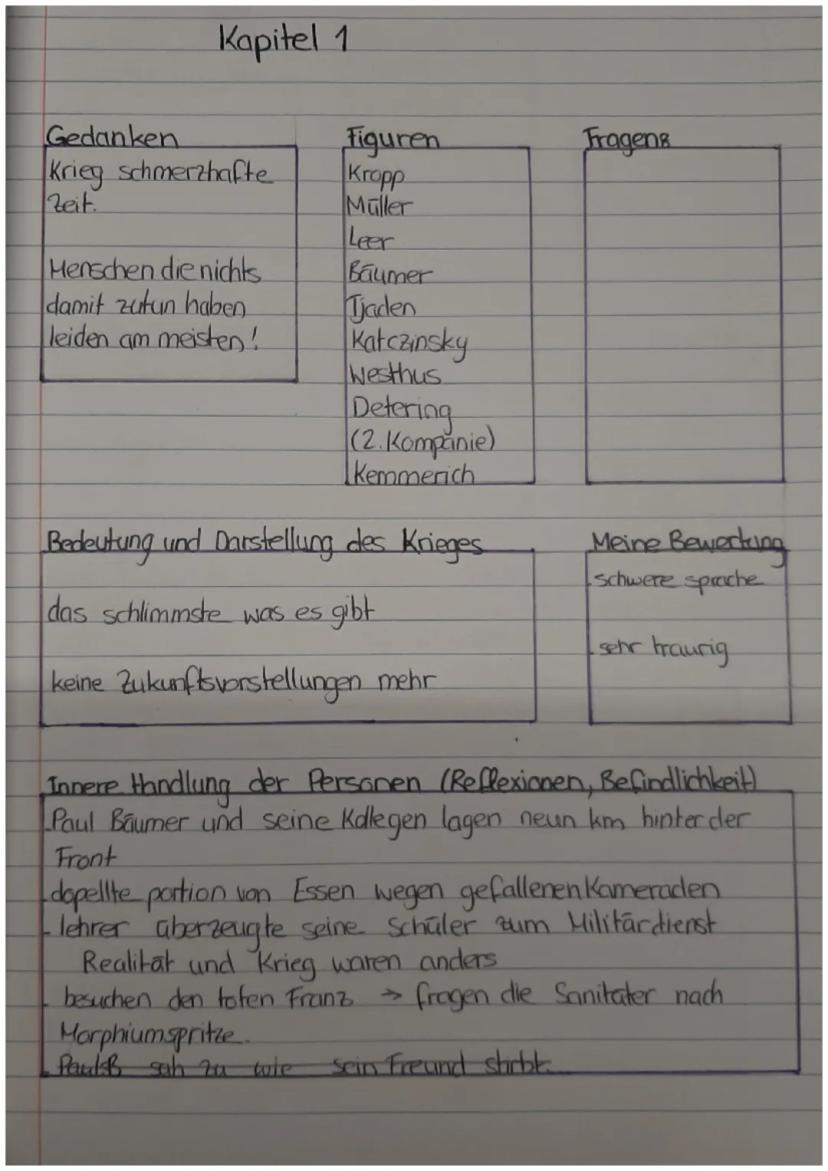 Kapitel 1
Gedanken
Krieg schmerzhafte
Zeit.
Menschen die nichts
damit zutun haben
leiden am meisten!
Figuren
Kropp
Müller
Leer
Bäumer
Tjaden
Katczinsky
Westhus
Detering
(2. Kompanie)
Kemmerich
Fragen:
Bedeutung und Darstellung des Krieges
das schlimmste was es gibt
keine Zukunftsvorstellungen mehr
Meine Bewertung
- schwere sprache
- sehr traurig
Innere Handlung der Personen (Reflexionen, Befindlichkeit)
- Paul Bäumer und seine Kollegen lagen neun km hinter der
Front
- dopellte portion von Essen wegen gefallenen Kameraden
- lehrer überzeugte seine Schüler zum Militärdienst
Realität und Krieg waren anders
- besuchen den toten Franz → fragen die Sanitäter nach
Morphiumspritze.
- Paul B sah zu wie sein Freund stirbt.